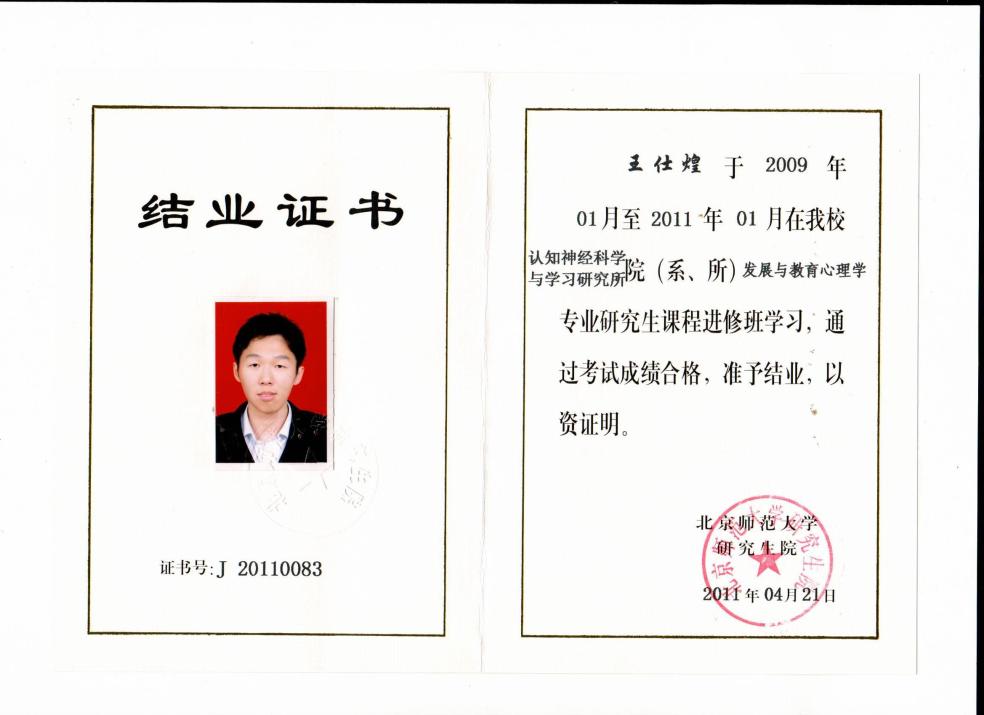 结业证书
证书号:J 20110083
王仕煌 于 2009 年
01月至 2011年 01 月在我校
认知神经科学
与学习研究所院(系、所)发展与教育心理学
专业研究生课程进修班学习,通
过考试成绩合格,准予结业,以
资证明。
北京师范大学
研究生院
2011年04月21日
北京师范大学研究生院